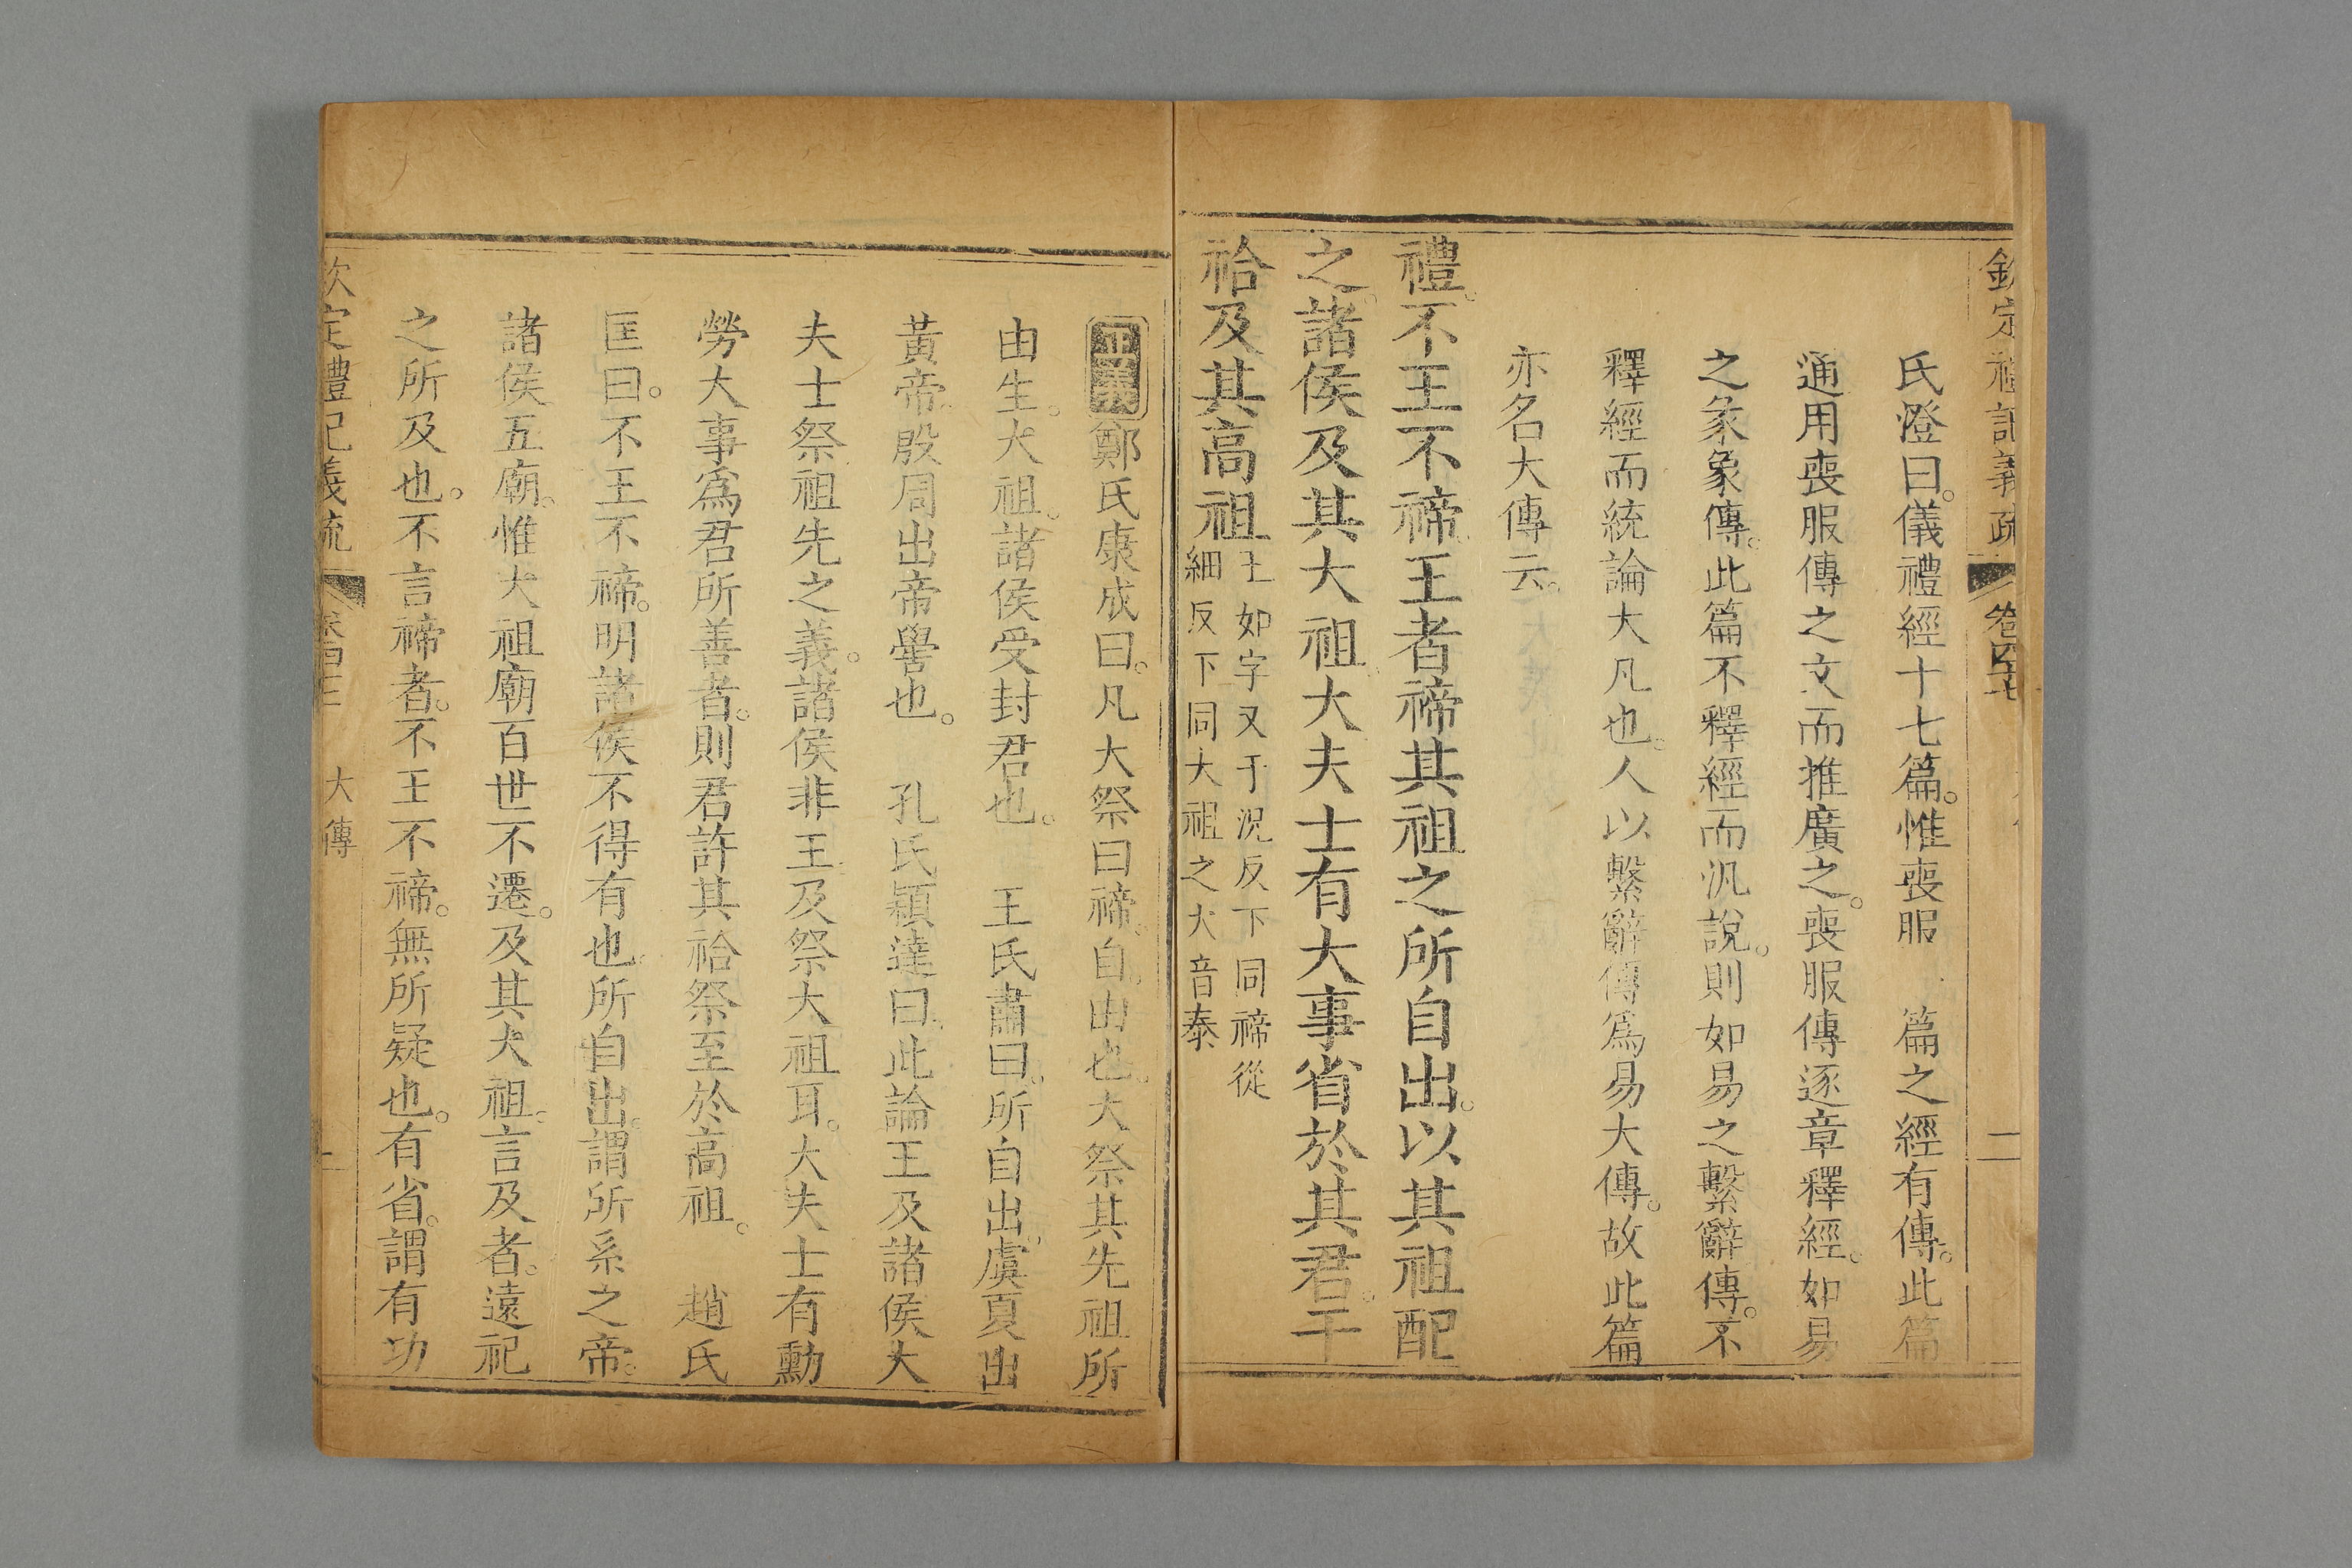 欽定禮記義疏 卷四十七 二
氏澄曰。儀禮經十七篇。惟喪服 篇之經有傳。此篇
通用喪服傳之文而推廣之。喪服傳逐章釋經。如易
之彖象傳。此篇不釋經而汎說。則如易之繫辭傳。不
釋經而統論大凡也。人以繫辭傳爲易大傳。故此篇
亦名大傳云。
禮。不王不禘。王者禘其祖之所自出。以其祖配
之。諸侯及其大祖。大夫士有大事省於其君。干
祫及其高祖
王如字又于況反下同禘從
細反下同大祖之大音泰
正義鄭氏康成曰。凡大祭曰禘。自。由也。大祭其先祖所
由生。大祖。諸侯受封君也。 王氏肅曰。所自出。虞夏出
黃帝。殷周出帝嚳也。 孔氏穎達曰。此論王及諸侯大
夫士祭祖先之義。諸侯非王。及祭大祖耳。大夫士有勳
勞大事爲君所善者。則君許其祫祭至於高祖。 趙氏
匡曰。不王不禘。明諸侯不得有也。所自出。謂所系之帝。
諸侯五廟。惟大祖廟百世不遷。及其大祖。言及者。遠祀
之所及也。不言禘者。不王不禘。無所疑也。有省。謂有功
欽定禮記義疏 大傳